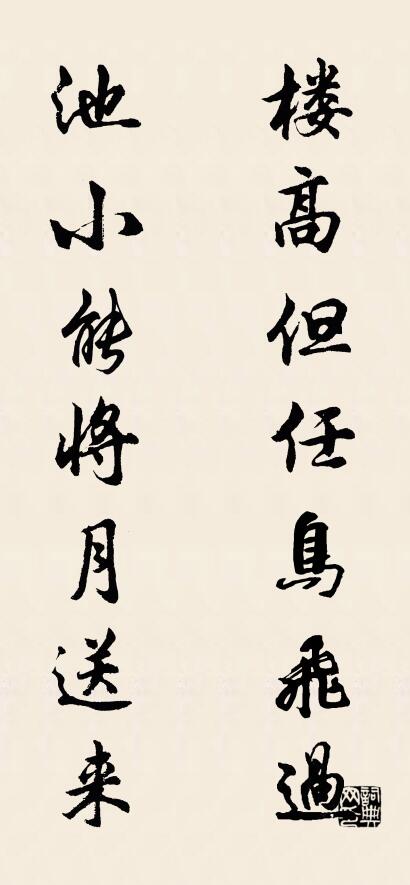 楼高但任鳥飛過
池小能将月送来
詞典网